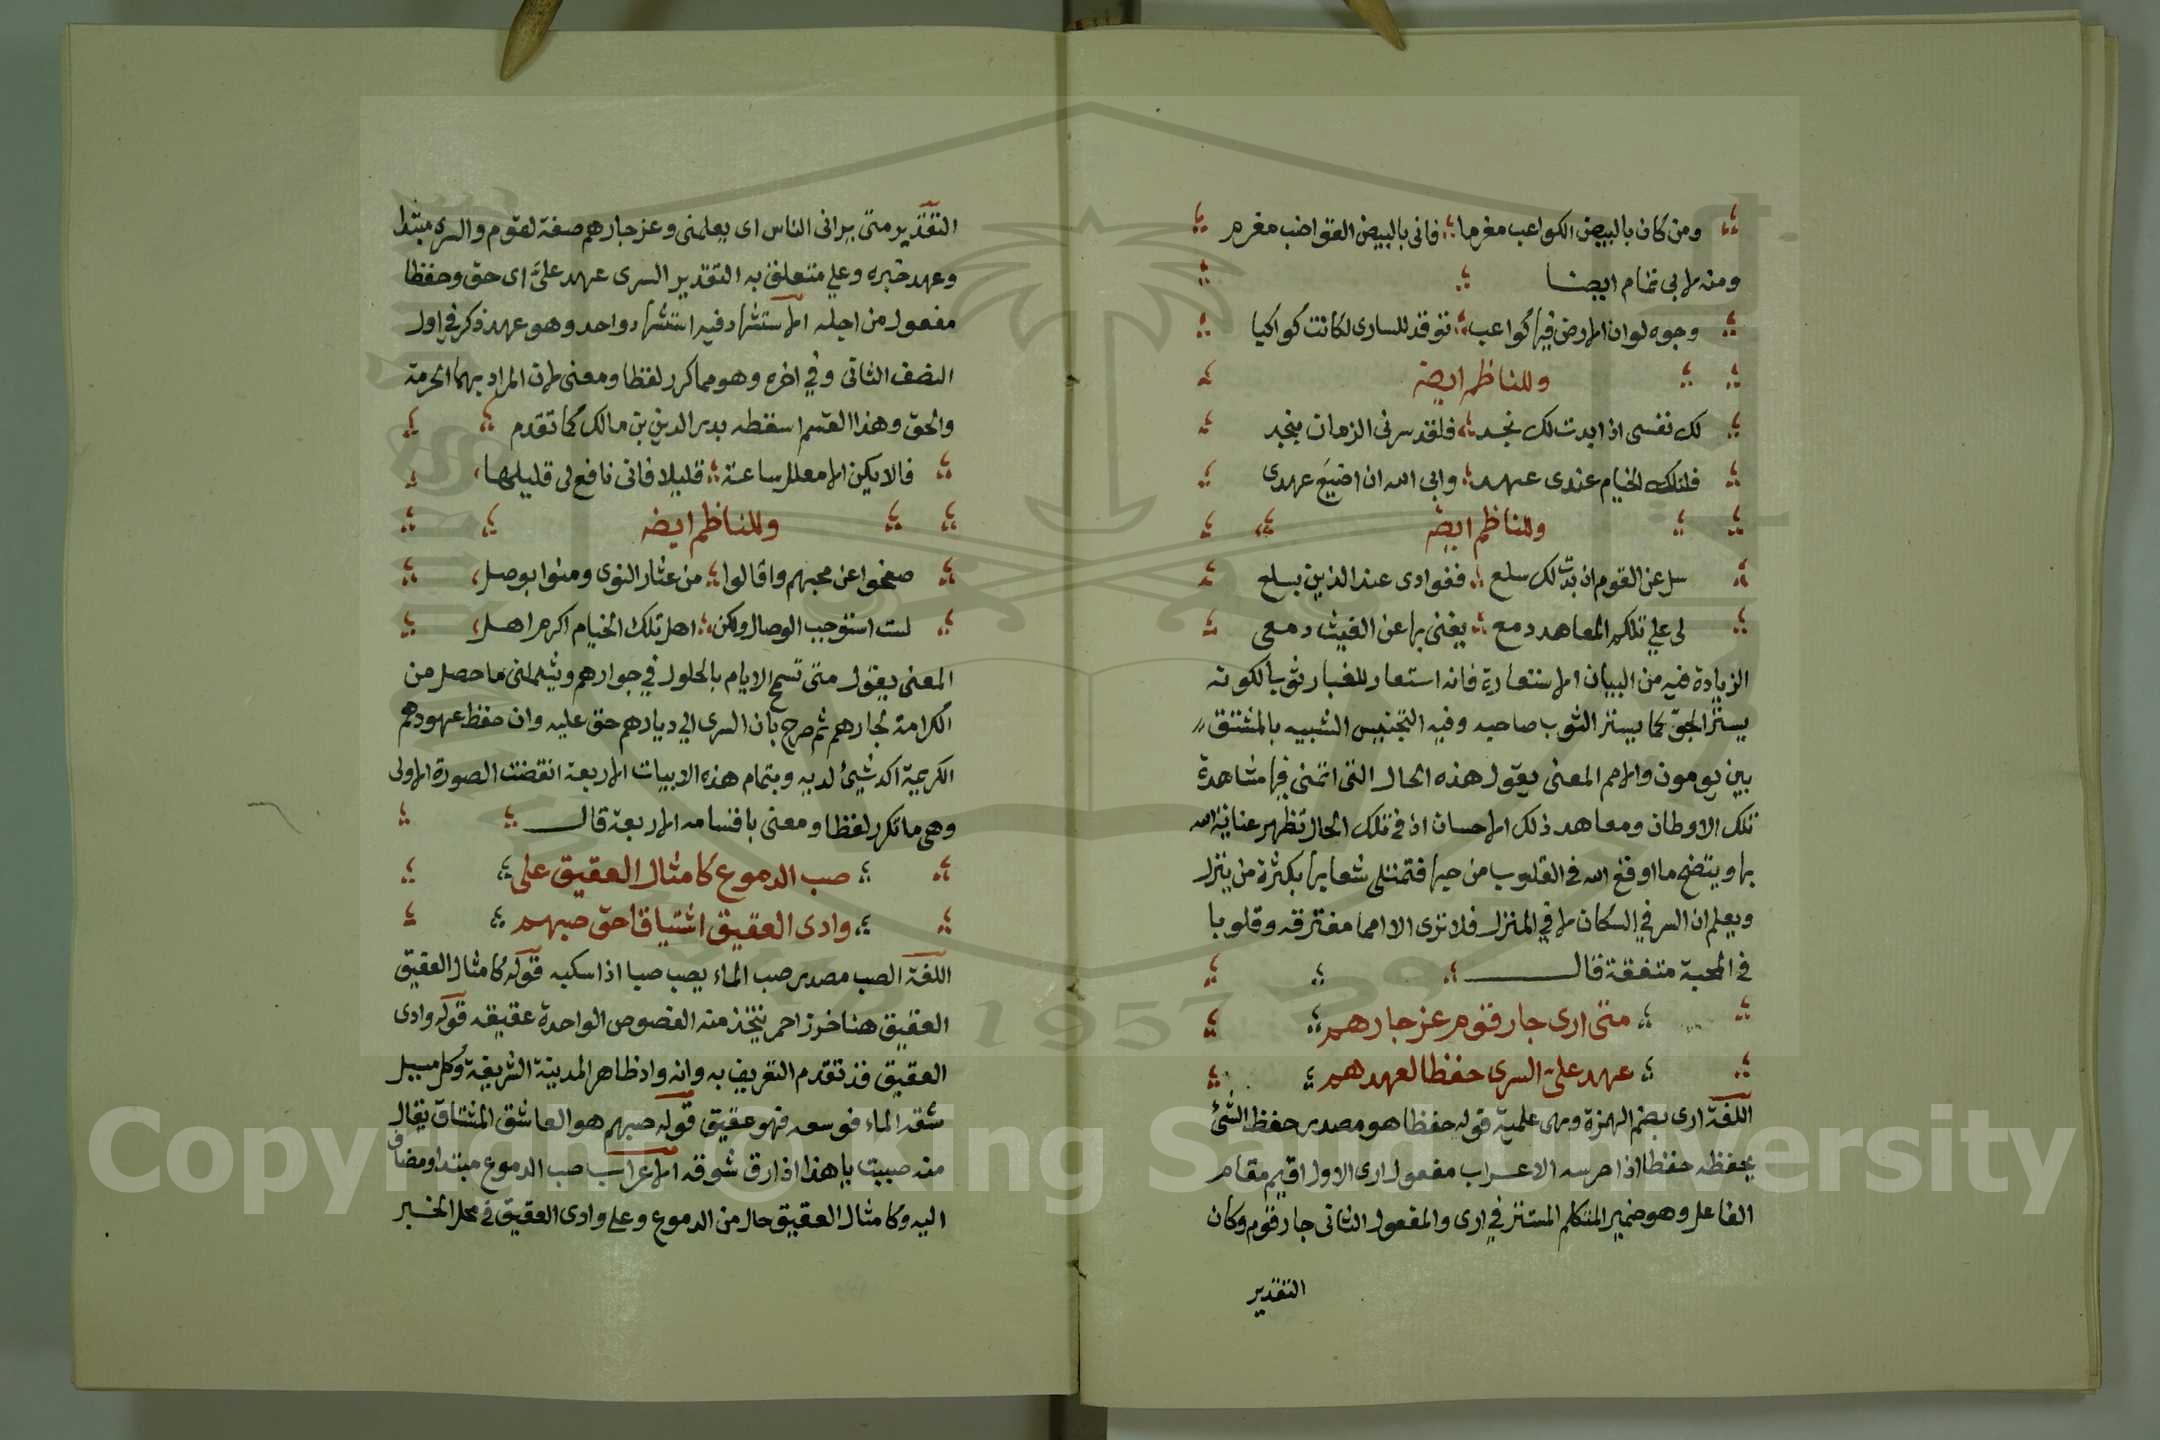 ومن كان بالبيض الكواعب مغرما فاني بالبيض القواضب مغرم
ومنه لابي تمام ايضا
وجوه لوان الارض فيها كواعب توقد للساري لكانت كواكبا
وللناظم ايضه
لك نفسي اذا بدت لك نجد فلقد سرني الزمان بنجد
فلتلك الخيام عندي عهد وابي الله ان اضيع عهدي
وللناظم ايضه
سل عن القوم ان بدت لك سلع ففوادي عند الذين بسلع
لي علي تلكم المعاهد دمع يغني بها عن الغيث دمعي
الزيادة فيه من البيان الاستعارة فانه استعار للغبار ثوبا لكونه
يستر الجو كما يستر الثوب صاحبه وفيه التجنيس الشبيه بالمشتق
بين يومون والامم المعني يقول هذه الحال التي اتمني فيها مشاهدة
تلك الاوطان ومعاهد ذلك الاحسان اذ في تلك الحال تظهر عناية الله
بها ويتضح ما اوقع الله في القلوب من حبها فتمتلي شعابها بكثرة من ينزل
ويعلم ان السر في السكان لا في المنزل فلا تري الا امما مفترقه وقلوبا
في المحبة متفقة قال
متي اري جار قوم عز جارهم
عهد علي السري حفظا لعهدهم
اللغة اري بضم الهمزة وهي علمية قوله حفظا هو مصدر حفظ الشئ
يحفظه حفظا اذا حرسه الاعراب مفعول اري الاول اقيم مقام
الفاعل وهو ضمير المتكلم المستتر في اري والمفعول الثاني جار قوم وكان
التقدير
التقدير متي يراني الناس اي يعلمني وعز جارهم صفة لقوم والسري مبتدا
وعهد خبره وعلي متعلق به التقدير السري عهد عليّ اي حق وحفظا
مفعول من اجله الاستشهاد فيه استشهاد واحد وهو عهد ذكر في اول
النصف الثاني وفي اخره وهو مما كرر لفظا ومعني لان المراد بهما الحرمة
والحق وهذا القسم اسقطه بدر الدين بن مالك كما تقدم
فالا يكن الا معلل ساعة قليلا فاني نافع لي قليلها
وللناظم ايضه
صفحوا عن محبهم واقالوا من عثار النوي ومنوا بوصل
لست استوجب الوصال ولكن اهل تلك الخيام اكرم اهل
المعني يقول متي تسمح الايام بالحلول في جوارهم ويشملني ما حصل من
الكرامة لجارهم ثم صرح بان السري الي ديارهم حق عليه وان حفظ عهودهم
الكريمة اكد شيئ لديه وبتمام هذه الابيات الاربعة انقضت الصورة الاولي
وهي ما تكرر لفظا ومعني باقسامه الاربعة قال
صب الدموع كامثال العقيق علي
وادي العقيق اشتياقا حق صبهم
اللغة الصب مصدر صب الماء يصب صبا اذا سكبه قوله كامثال العقيق
العقيق هنا خرز احمر يتخذ منه الفصوص الواحدة عقيقه قوله وادي
العقيق قد تقدم التعريف به وانه واد ظاهر المدينة الشريفة وكل مسيل
شقه الماء فوسعه فهو عقيق قوله صبهم هو العاشق المشتاق يقال
منه صببت يا هذا اذا رق شوقه الاعراب صب الدموع مبتدا ومضاف
اليه وكامثال العقيق حال من الدموع وعلي وادي العقيق في محل الخبر
Copyright © King Saud University
1957